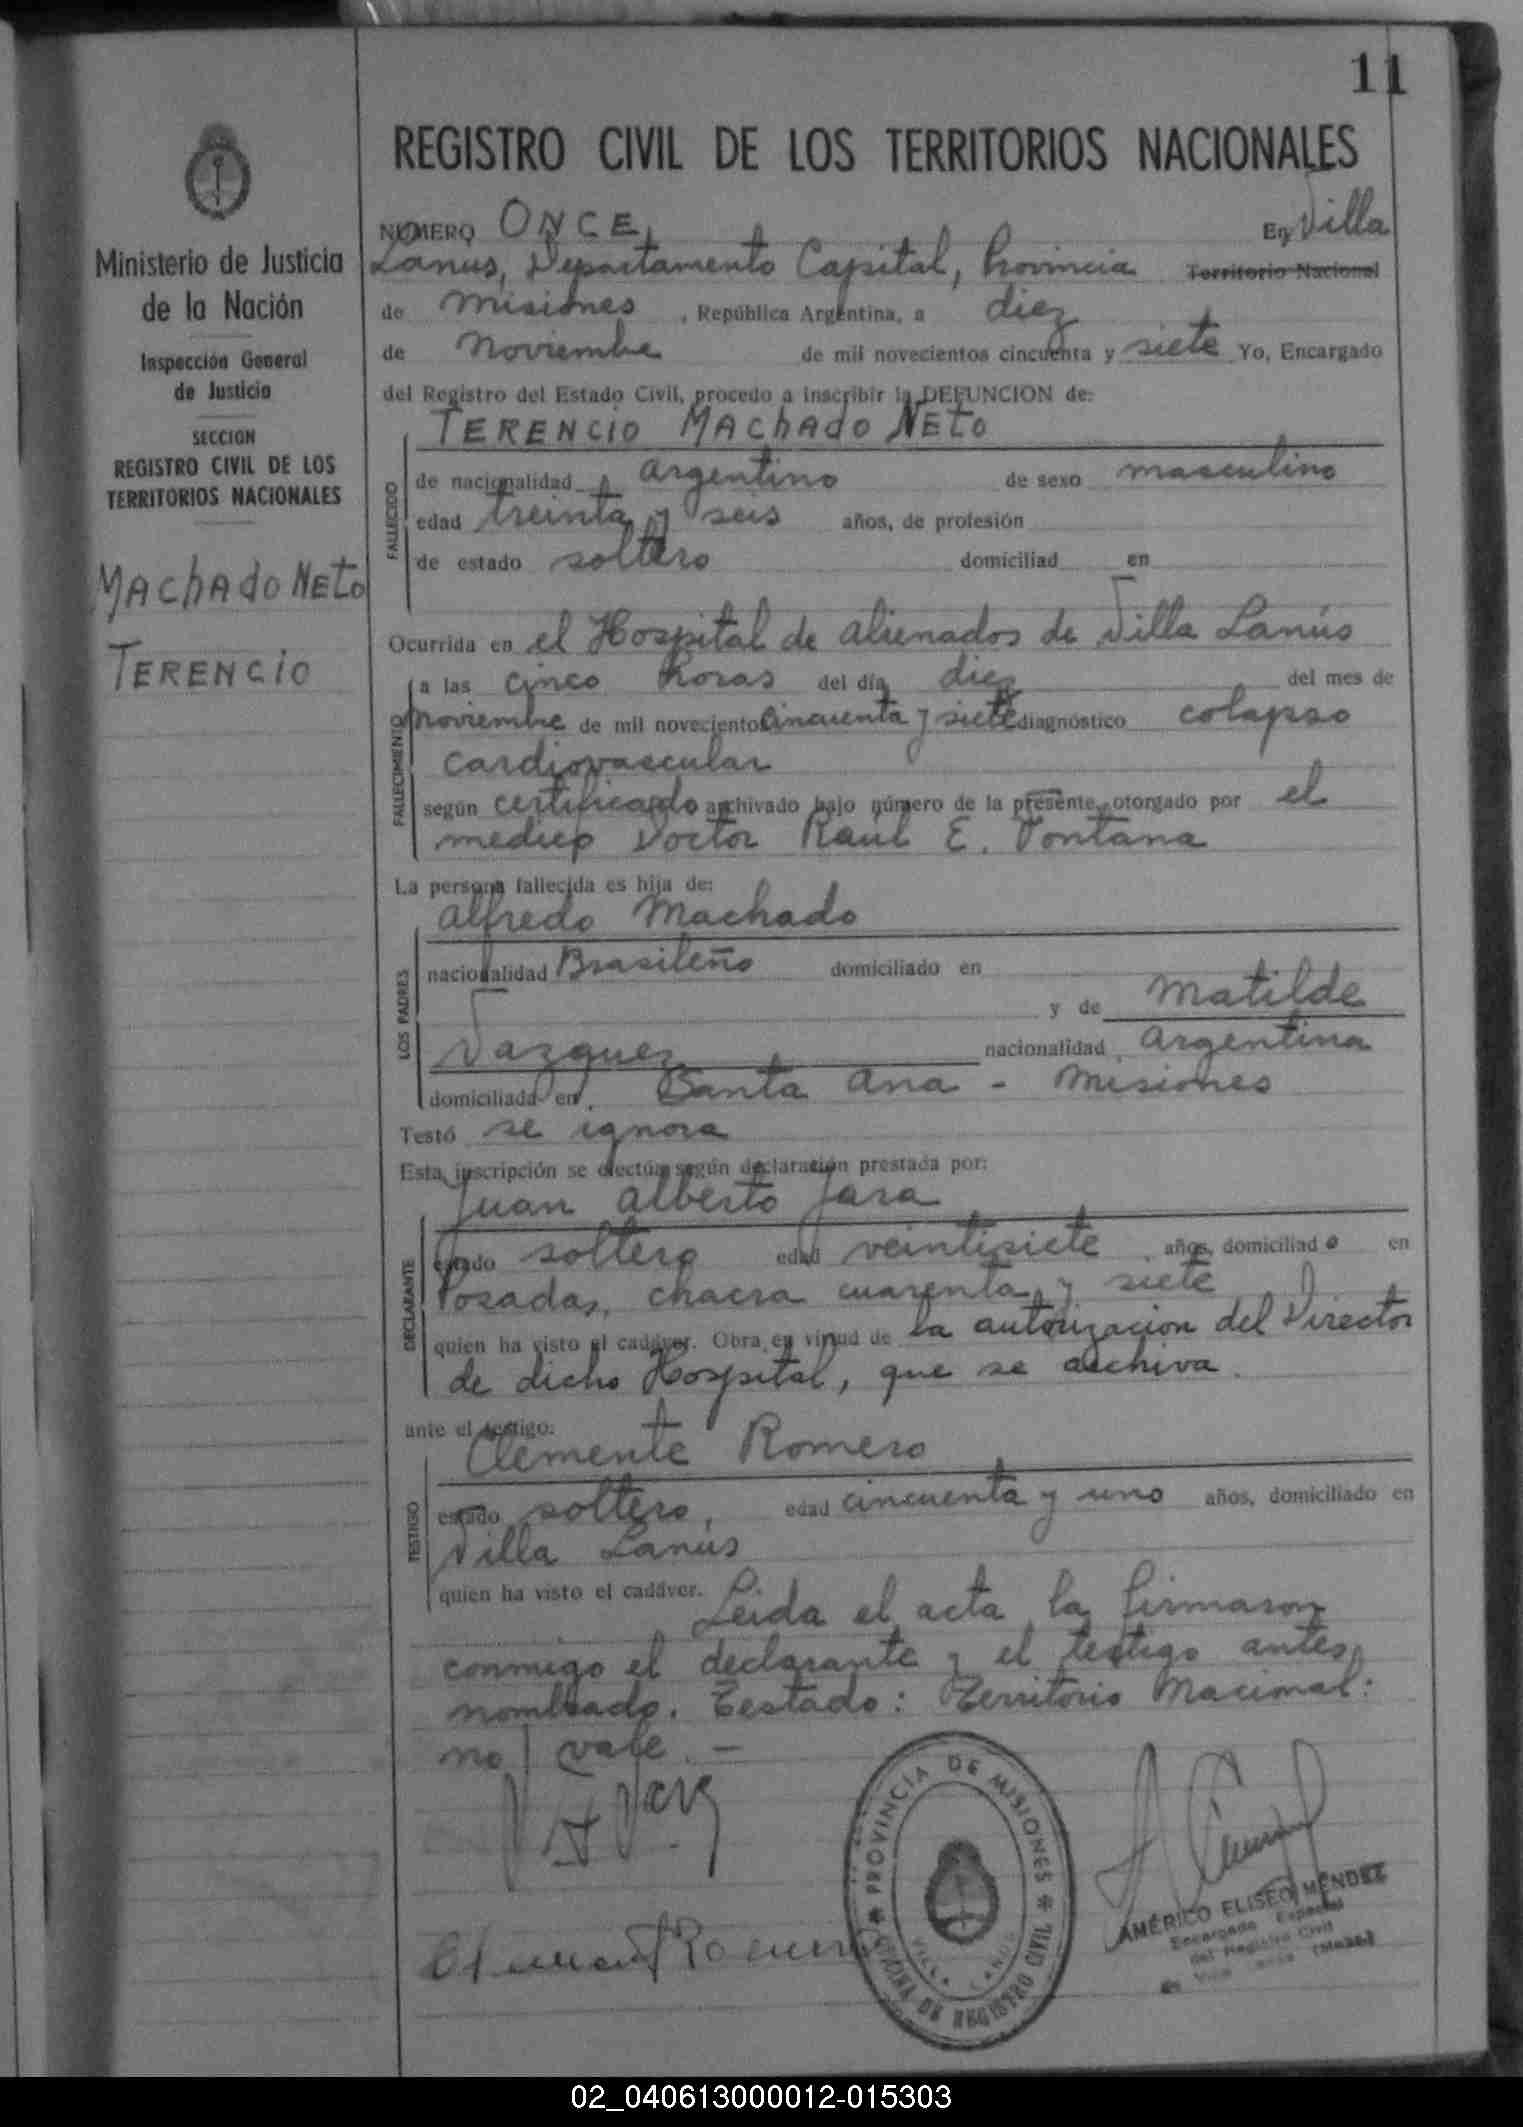 11
REGISTRO CIVIL DE LOS TERRITORIOS NACIONALES
Ministerio de Justicia
de la Nación
Inspección General
de Justicia
SECCION
REGISTRO CIVIL DE LOS
TERRITORIOS NACIONALES
Machado Neto
Terencio
NUMERO ONCE, En Villa
Lanus, Departamento Capital, Provincia Territorio Nacional
de Misiones, República Argentina, a diez
de Noviembre de mil novecientos cincuenta y siete Yo, Encargado
del Registro del Estado Civil, procedo a inscribir la DEFUNCION de:
Terencio Machado Neto
FALLECIDO
de nacionalidad argentino de sexo masculino
edad treinta y seis años, de profesión
de estado soltero domiciliad en
Ocurrida en el Hospital de alienados de Villa Lanús
FALLECIMIENTO
a las cinco horas del día diez del mes de
Noviembre de mil novecientos cincuenta y siete diagnóstico colapso
cardiovascular
según certificado archivado bajo número de la presente, otorgado por el
medico Doctor Raul E. Fontana
La persona fallecida es hija de:
Alfredo Machado
LOS PADRES
nacionalidad Brasileño domiciliado en
y de Matilde
Vazquez nacionalidad argentina
domiciliada en Santa Ana - Misiones
Testó se ignora
Esta inscripción se efectúa según declaración prestada por:
Juan Alberto Jara
DECLARANTE
estado soltero edad veintisiete años, domiciliado en
Posadas, chacra cuarenta y siete
quien ha visto el cadáver. Obra en virtud de la autorizacion del Director
de dicho Hospital, que se archiva.
ante el testigo:
Clemente Romero
TESTIGO
estado soltero, edad cincuenta y uno años, domiciliado en
Villa Lanús
quien ha visto el cadáver. Leida el acta la firmaron
conmigo el declarante y el testigo antes
nombrado. Testado: Territorio Nacional:
no vale. —
PROVINCIA DE MISIONES
OFICINA DE REGISTRO CIVIL
VILLA LANUS
AMÉRICO ELISEO MÉNDEZ
Encargado Especial
del Registro Civil
02_040613000012-015303